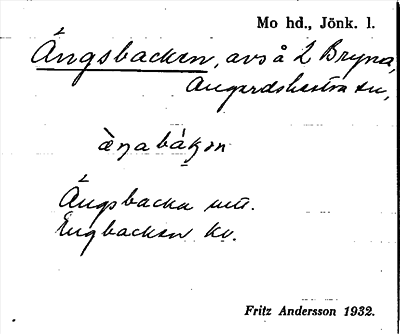 Mo hd., Jönk. l.
Ängsbacken, avs å 2 Bryna,
Angerdshestra sn,
Ängsbacka mtl.
Engbacken kv.
Fritz Andersson 1932.